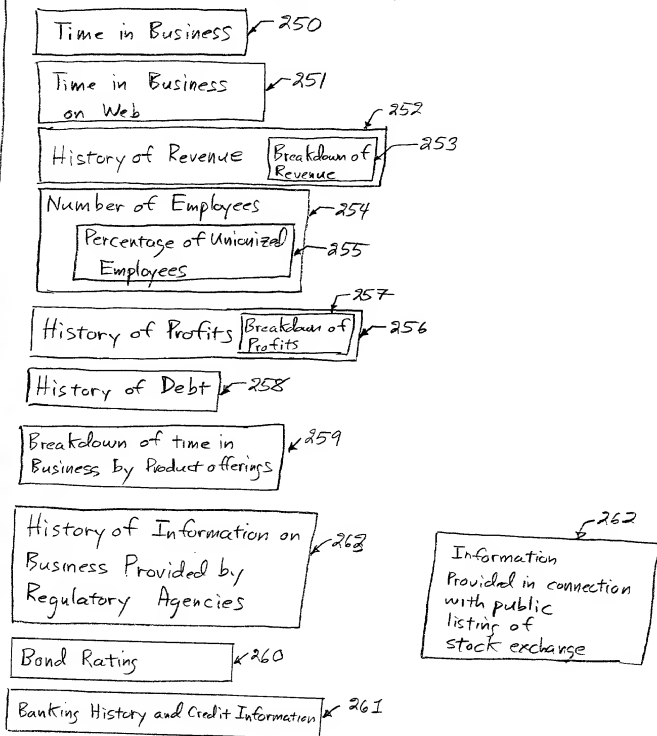 Time in Business
250
Time in Business
on Web
251
252
History of Revenue
Breakdown of
Revenue
253
Number of Employees
254
Percentage of Unionized
Employees
255
257
History of Profits
Breakdown of
Profits
256
History of Debt
258
Breakdown of time in
Business by Product offerings
259
History of Information on
Business Provided by
Regulatory Agencies
263
262
Information
Provided in connection
with public
listing of
stock exchange
Bond Rating
260
Banking History and Credit Information
261